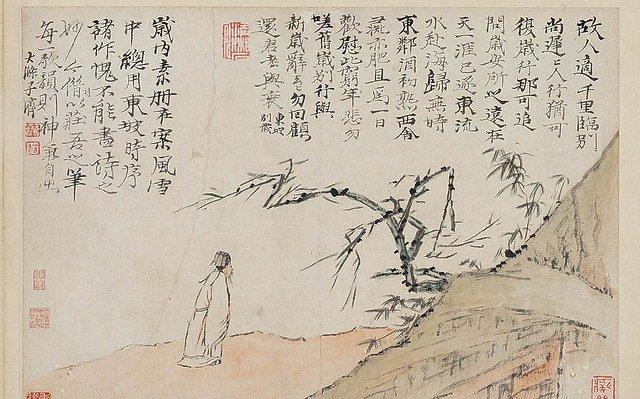 故人適千里臨別
尚遲々人行猶可
復歲行那可追
問歲安所之遠在
天一涯已逐東流
水赴海歸無時
東鄰酒初熟西舍
彘亦肥且為一日
歡慰此窮年悲勿
嗟舊歲別行與
新歲辭去々勿回顧
還君老與衰
東坡
別歲
歲內素冊在案風雪
中總用東坡時序
諸作愧不能盡詩之
妙亦借以莊吾之筆
每一歌頌則神氣自出
大滌子濟